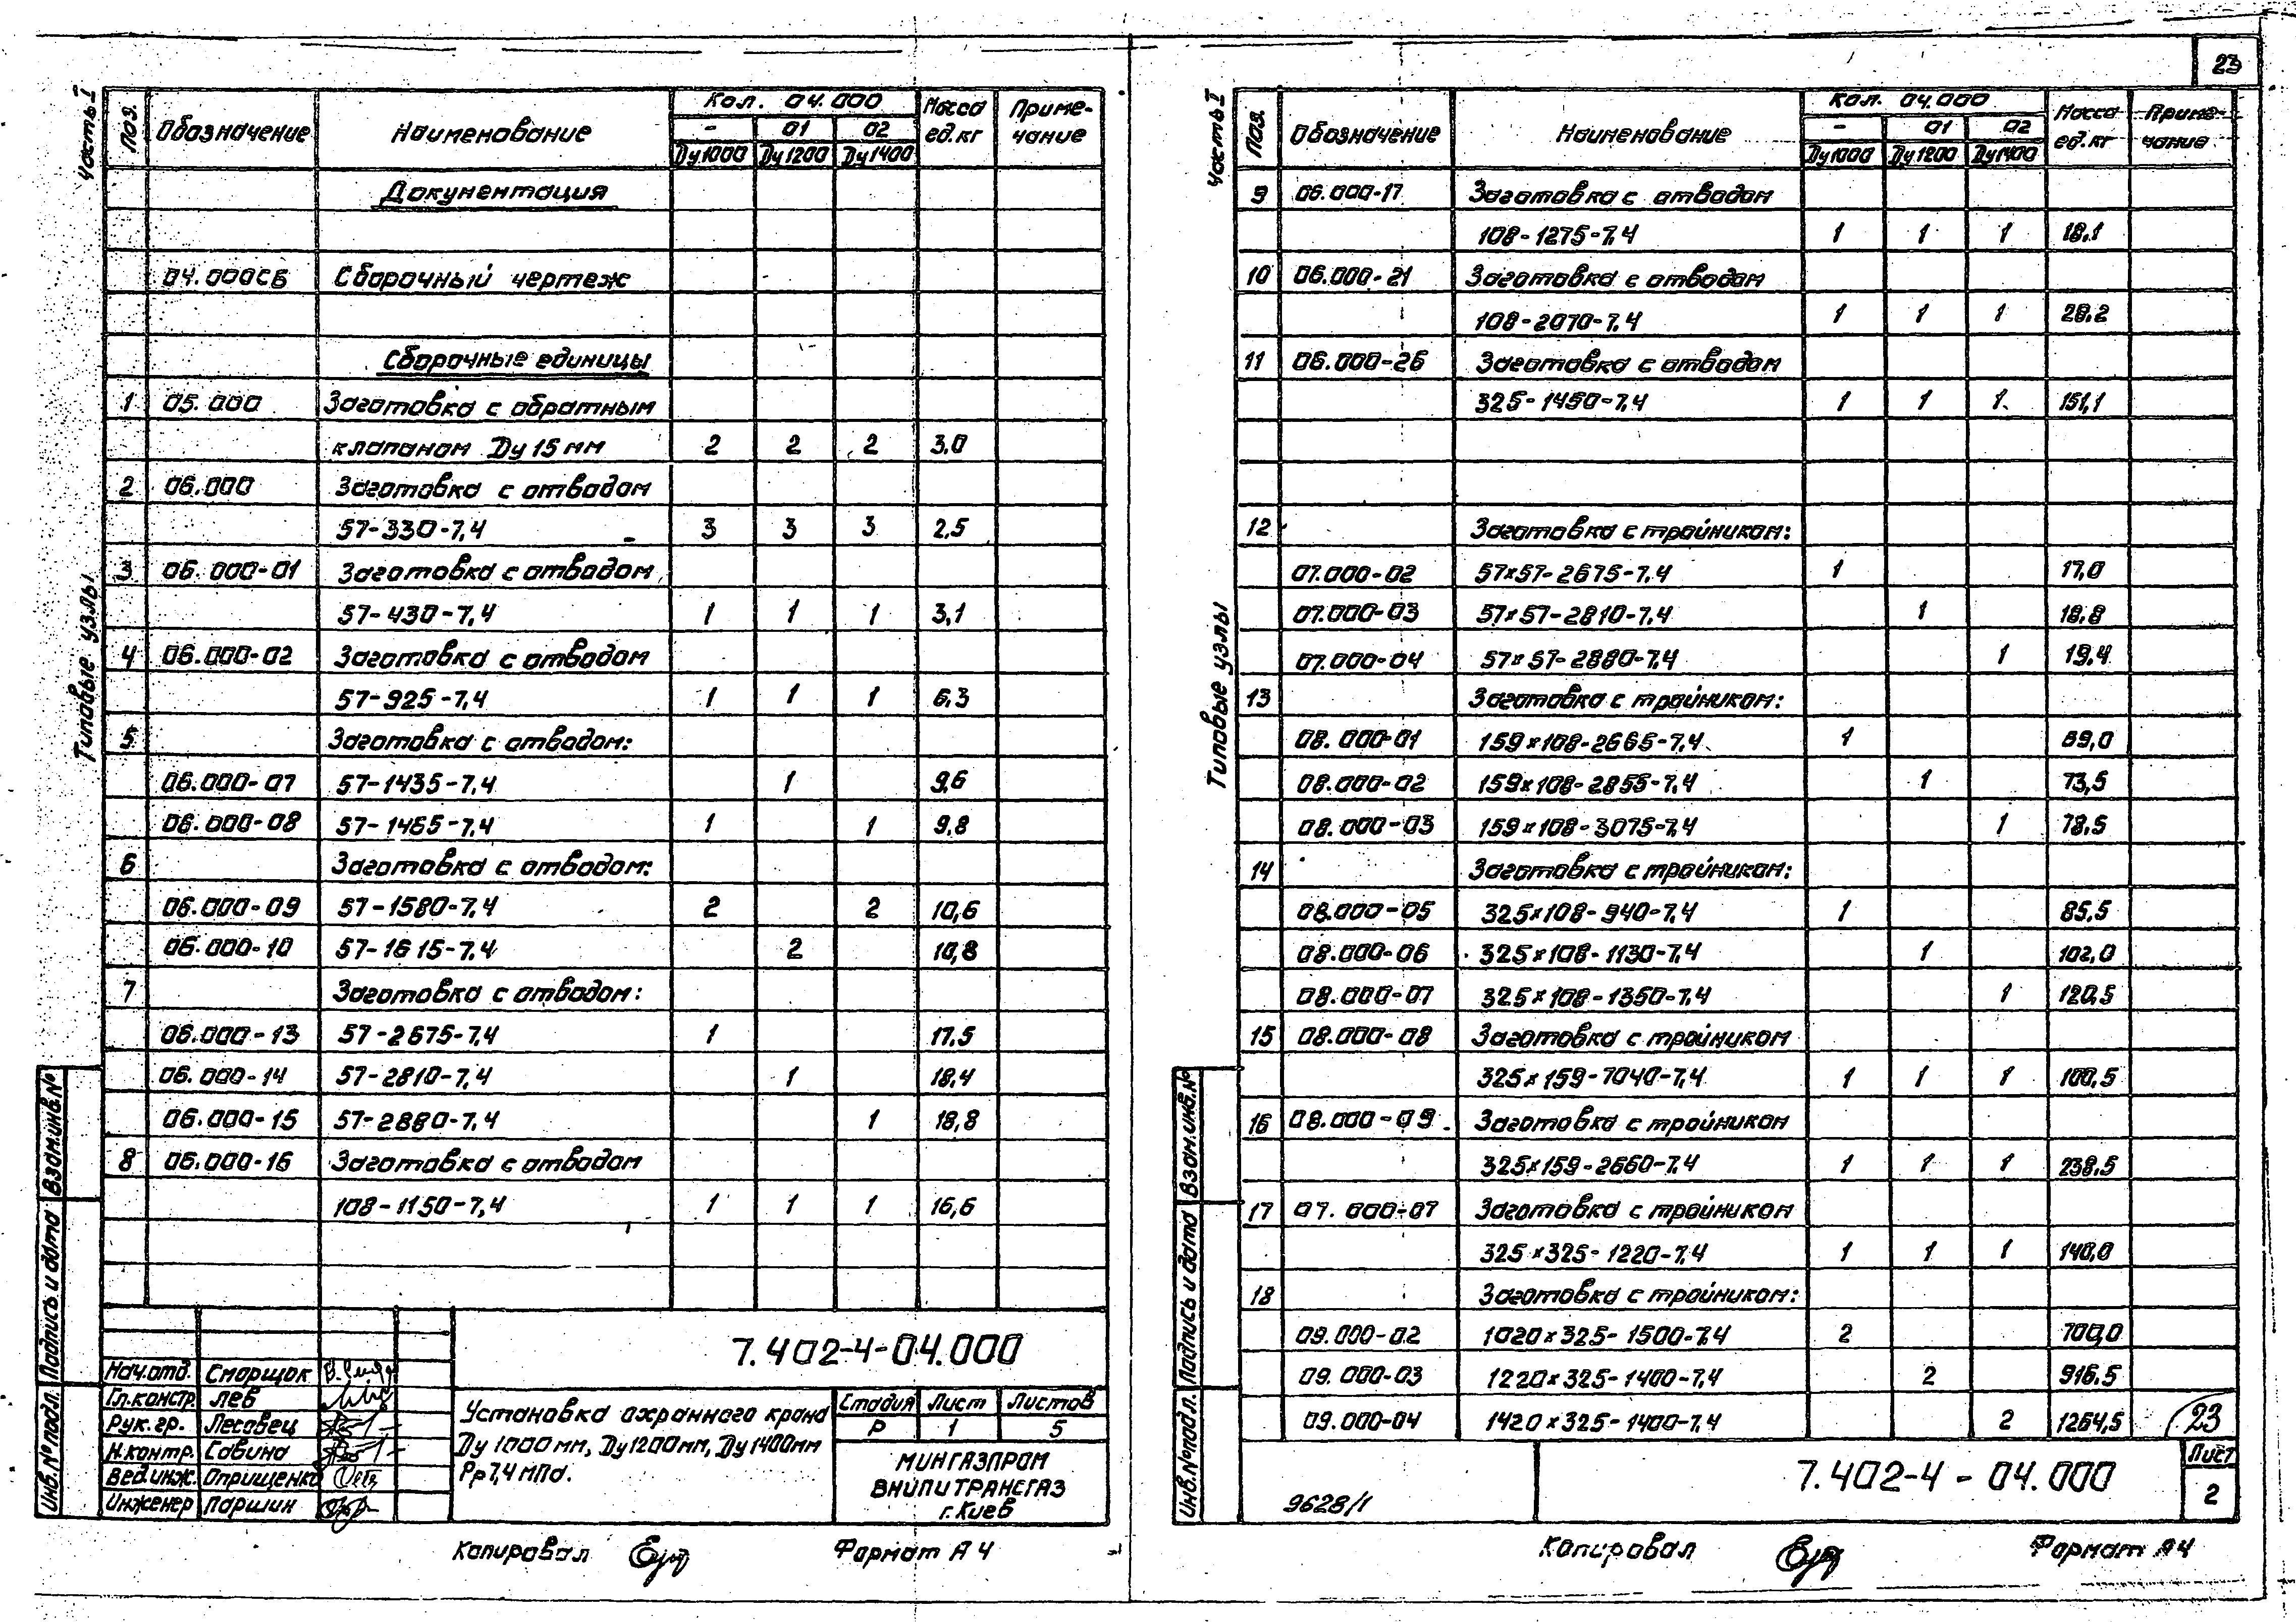 Часть I
Типовые узлы
Поз. Обозначение Наименование Кол. 04.000 Масса ед.кг Примечание
- 01 02
Ду1000 Ду1200 Ду1400
Документация
04.000СБ Сборочный чертеж
Сборочные единицы
1 05.000 Заготовка с обратным
клапаном Ду 15 мм 2 2 2 3.0
2 06.000 Заготовка с отводом
57-330-7,4 3 3 3 2,5
3 06.000-01 Заготовка с отводом
57-430-7,4 1 1 1 3,1
4 06.000-02 Заготовка с отводом
57-925-7,4 1 1 1 6,3
5 Заготовка с отводом:
06.000-07 57-1435-7,4 1 9,6
06.000-08 57-1465-7,4 1 1 9,8
6 Заготовка с отводом:
06.000-09 57-1580-7,4 2 2 10,6
06.000-10 57-1615-7,4 2 10,8
7 Заготовка с отводом:
06.000-13 57-2675-7,4 1 17,5
06.000-14 57-2810-7,4 1 18,4
06.000-15 57-2880-7,4 1 18,8
8 06.000-16 Заготовка с отводом
108-1150-7,4 1 1 1 16,6
Взам.инв.№
Подпись и дата
Инв.№ подл.
7.402-4-04.000
Нач.отд. Сморщок
Гл.констр. Лев
Рук.гр. Лесовец
Н.контр. Савина
Вед.инж. Оприщенко
Инженер Паршин
Установка охранного крана
Ду 1000мм, Ду1200мм, Ду1400мм
Рр 7,4 МПа.
Стадия Лист Листов
Р 1 5
МИНГАЗПРОМ
ВНИПИТРАНСГАЗ
г.Киев
Копировал Формат А4
23
Часть I
Типовые узлы
Поз. Обозначение Наименование Кол. 04.000 Масса ед.кг Примечание
- 01 02
Ду1000 Ду1200 Ду1400
9 06.000-17 Заготовка с отводом
108-1275-7,4 1 1 1 18,1
10 06.000-21 Заготовка с отводом
108-2070-7,4 1 1 1 28,2
11 06.000-26 Заготовка с отводом
325-1450-7,4 1 1 1 151,1
12 Заготовка с тройником:
07.000-02 57×57-2675-7,4 1 17,0
07.000-03 57×57-2810-7,4 1 18,8
07.000-04 57×57-2880-7,4 1 19,4
13 Заготовка с тройником:
08.000-01 159×108-2665-7,4 1 69,0
08.000-02 159×108-2855-7,4 1 73,5
08.000-03 159×108-3075-7,4 1 78,5
14 Заготовка с тройником:
08.000-05 325×108-940-7,4 1 85,5
08.000-06 325×108-1130-7,4 1 102,0
08.000-07 325×108-1350-7,4 1 120,5
15 08.000-08 Заготовка с тройником
325×159-1040-7,4 1 1 1 100,5
16 08.000-09 Заготовка с тройником
325×159-2660-7,4 1 1 1 238,5
17 07.000-07 Заготовка с тройником
325×325-1220-7,4 1 1 1 140,0
18 Заготовка с тройником:
09.000-02 1020×325-1500-7,4 2 700,0
09.000-03 1220×325-1400-7,4 2 916,5
09.000-04 1420×325-1400-7,4 2 1264,5
23
Взам.инв.№
Подпись и дата
Инв.№подл.
9628/1
7.402-4-04.000
Лист
2
Копировал Формат А4